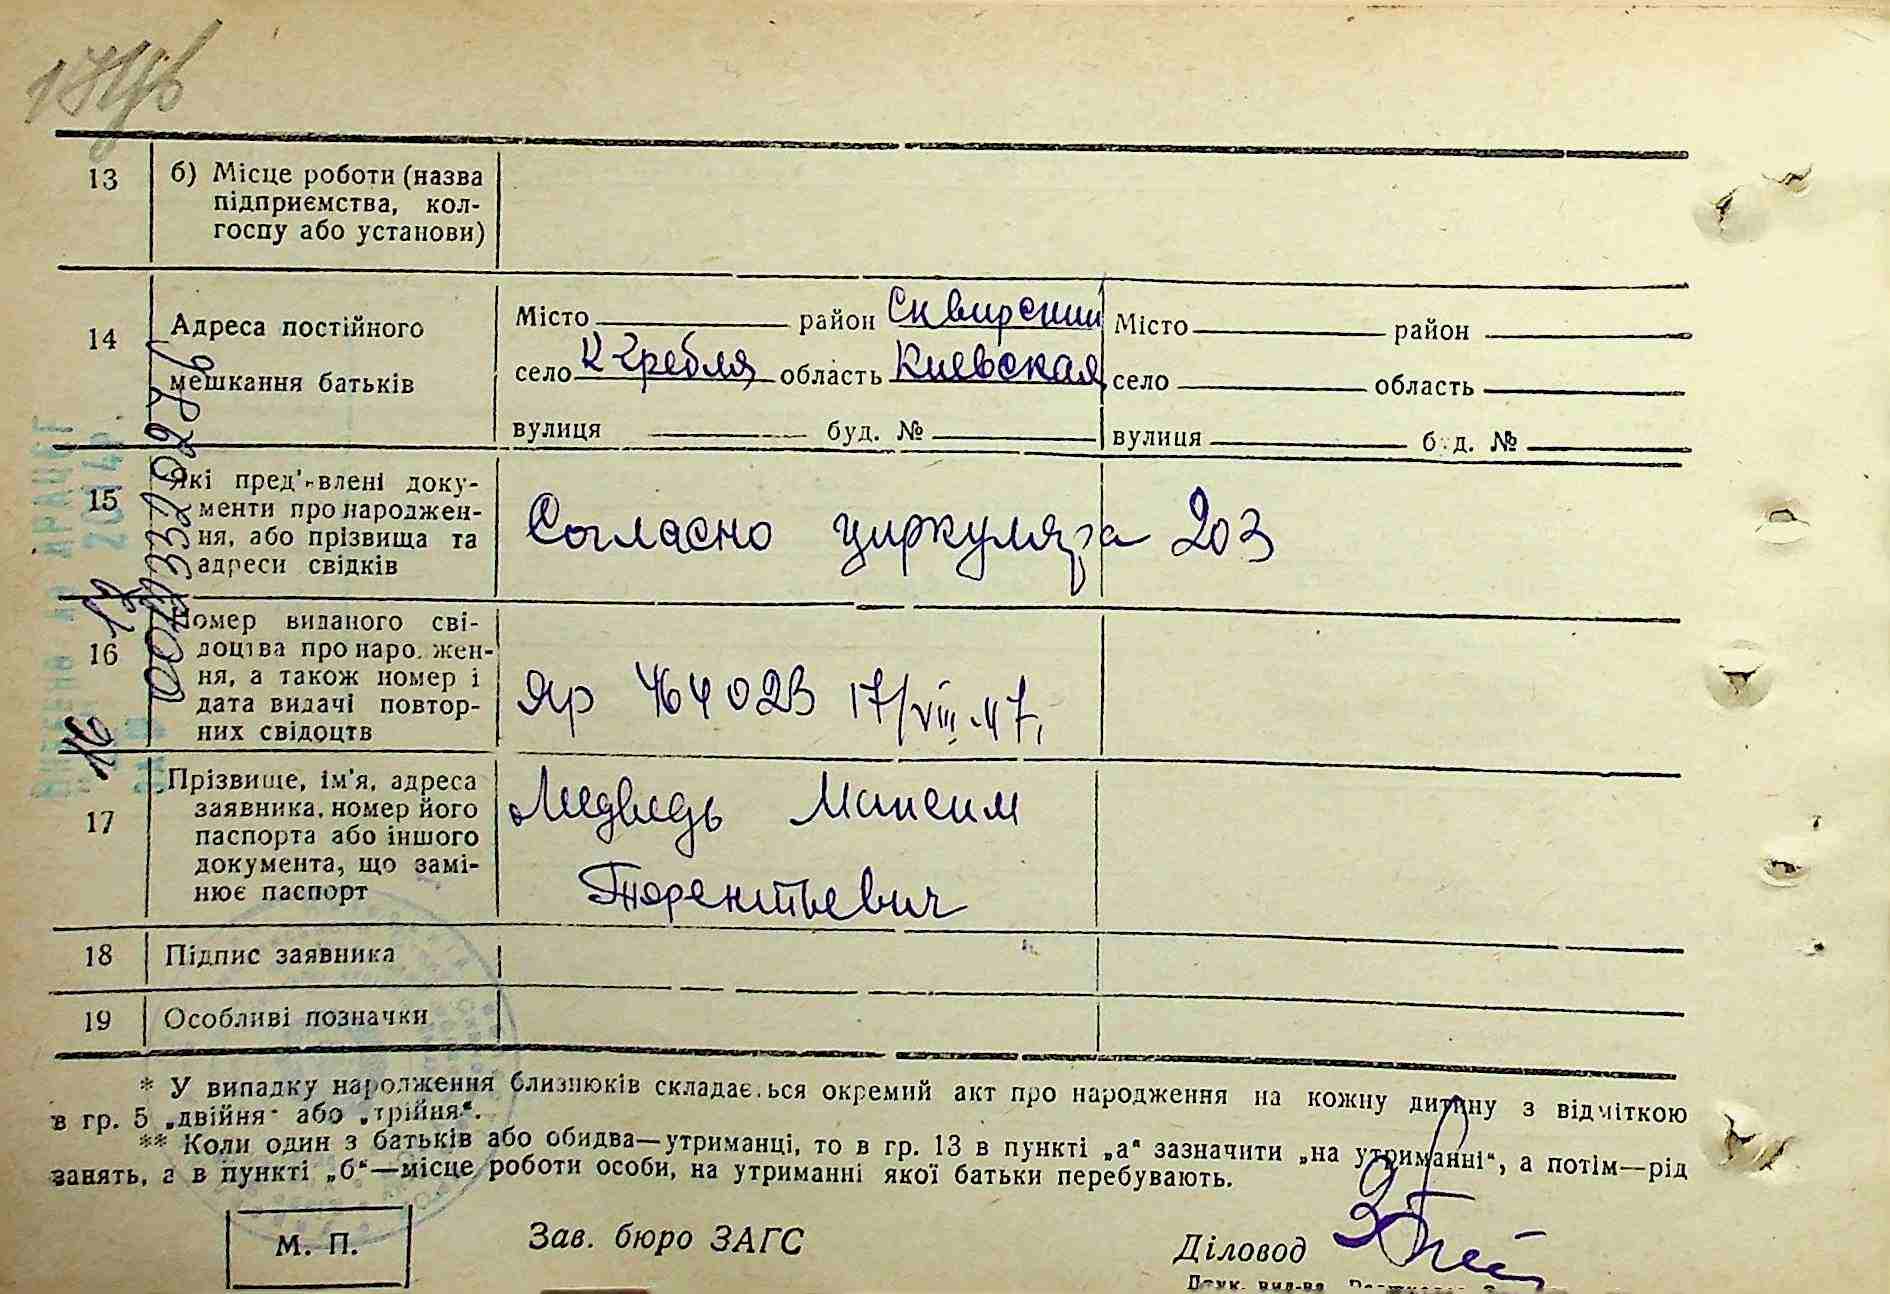 13 б) Місце роботи (назва
підприємства, кол-
госпу або установи)
14 Адреса постійного
мешкання батьків
Місто район Сквирский Місто район
село К Гребля область Киевская село область
вулиця буд. № вулиця буд. №
15 Які пред'явлені доку-
менти про народжен-
ня, або прізвища та
адреси свідків
Согласно циркуляра 203
16 Номер виданого сві-
доцтва про народжен-
ня, а також номер і
дата видачі повтор-
них свідоцтв
Яр 464023 17/VIII.47.
17 Прізвище, ім'я, адреса
заявника, номер його
паспорта або іншого
документа, що замі-
нює паспорт
Медведь Максим
Терентьевич
18 Підпис заявника
19 Особливі позначки
* У випадку народження близнюків складається окремий акт про народження на кожну дитину з відміткою
в гр. 5 „двійня" або „трійня".
** Коли один з батьків або обидва—утриманці, то в гр. 13 в пункті „а" зазначити „на утриманні", а потім—рід
занять, а в пункті „б"—місце роботи особи, на утриманні якої батьки перебувають.
М. П. Зав. бюро ЗАГС Діловод